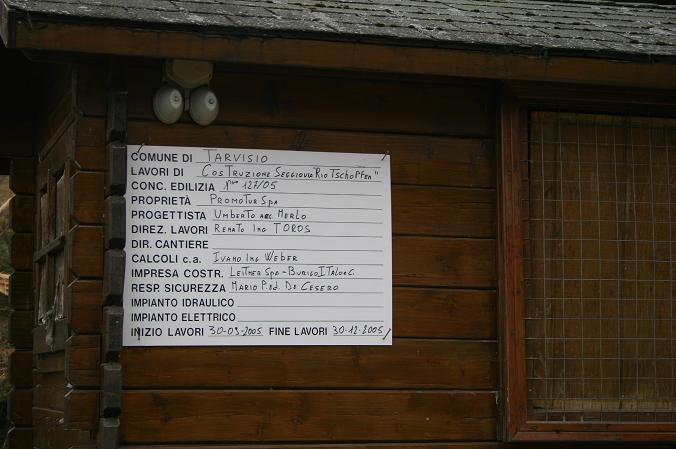 COMUNE DI TARVISIO
LAVORI DI COSTRUZIONE SEGGIOVIA "RIO TSCHOPFEN"
CONC. EDILIZIA N° 127/05
PROPRIETÀ PROMOTUR SPA
PROGETTISTA UMBERTO ARC. MERLO
DIREZ. LAVORI RENATO ING TOROS
DIR. CANTIERE
CALCOLI c.a. IVANO ING WEBER
IMPRESA COSTR. LEITNER SPA -
RESP SICUREZZA MARIO P.ed. DE CESERO
IMPIANTO IDRAULICO
IMPIANTO ELETTRICO
INIZIO LAVORI 30-09-2005 FINE LAVORI 30-12-2005